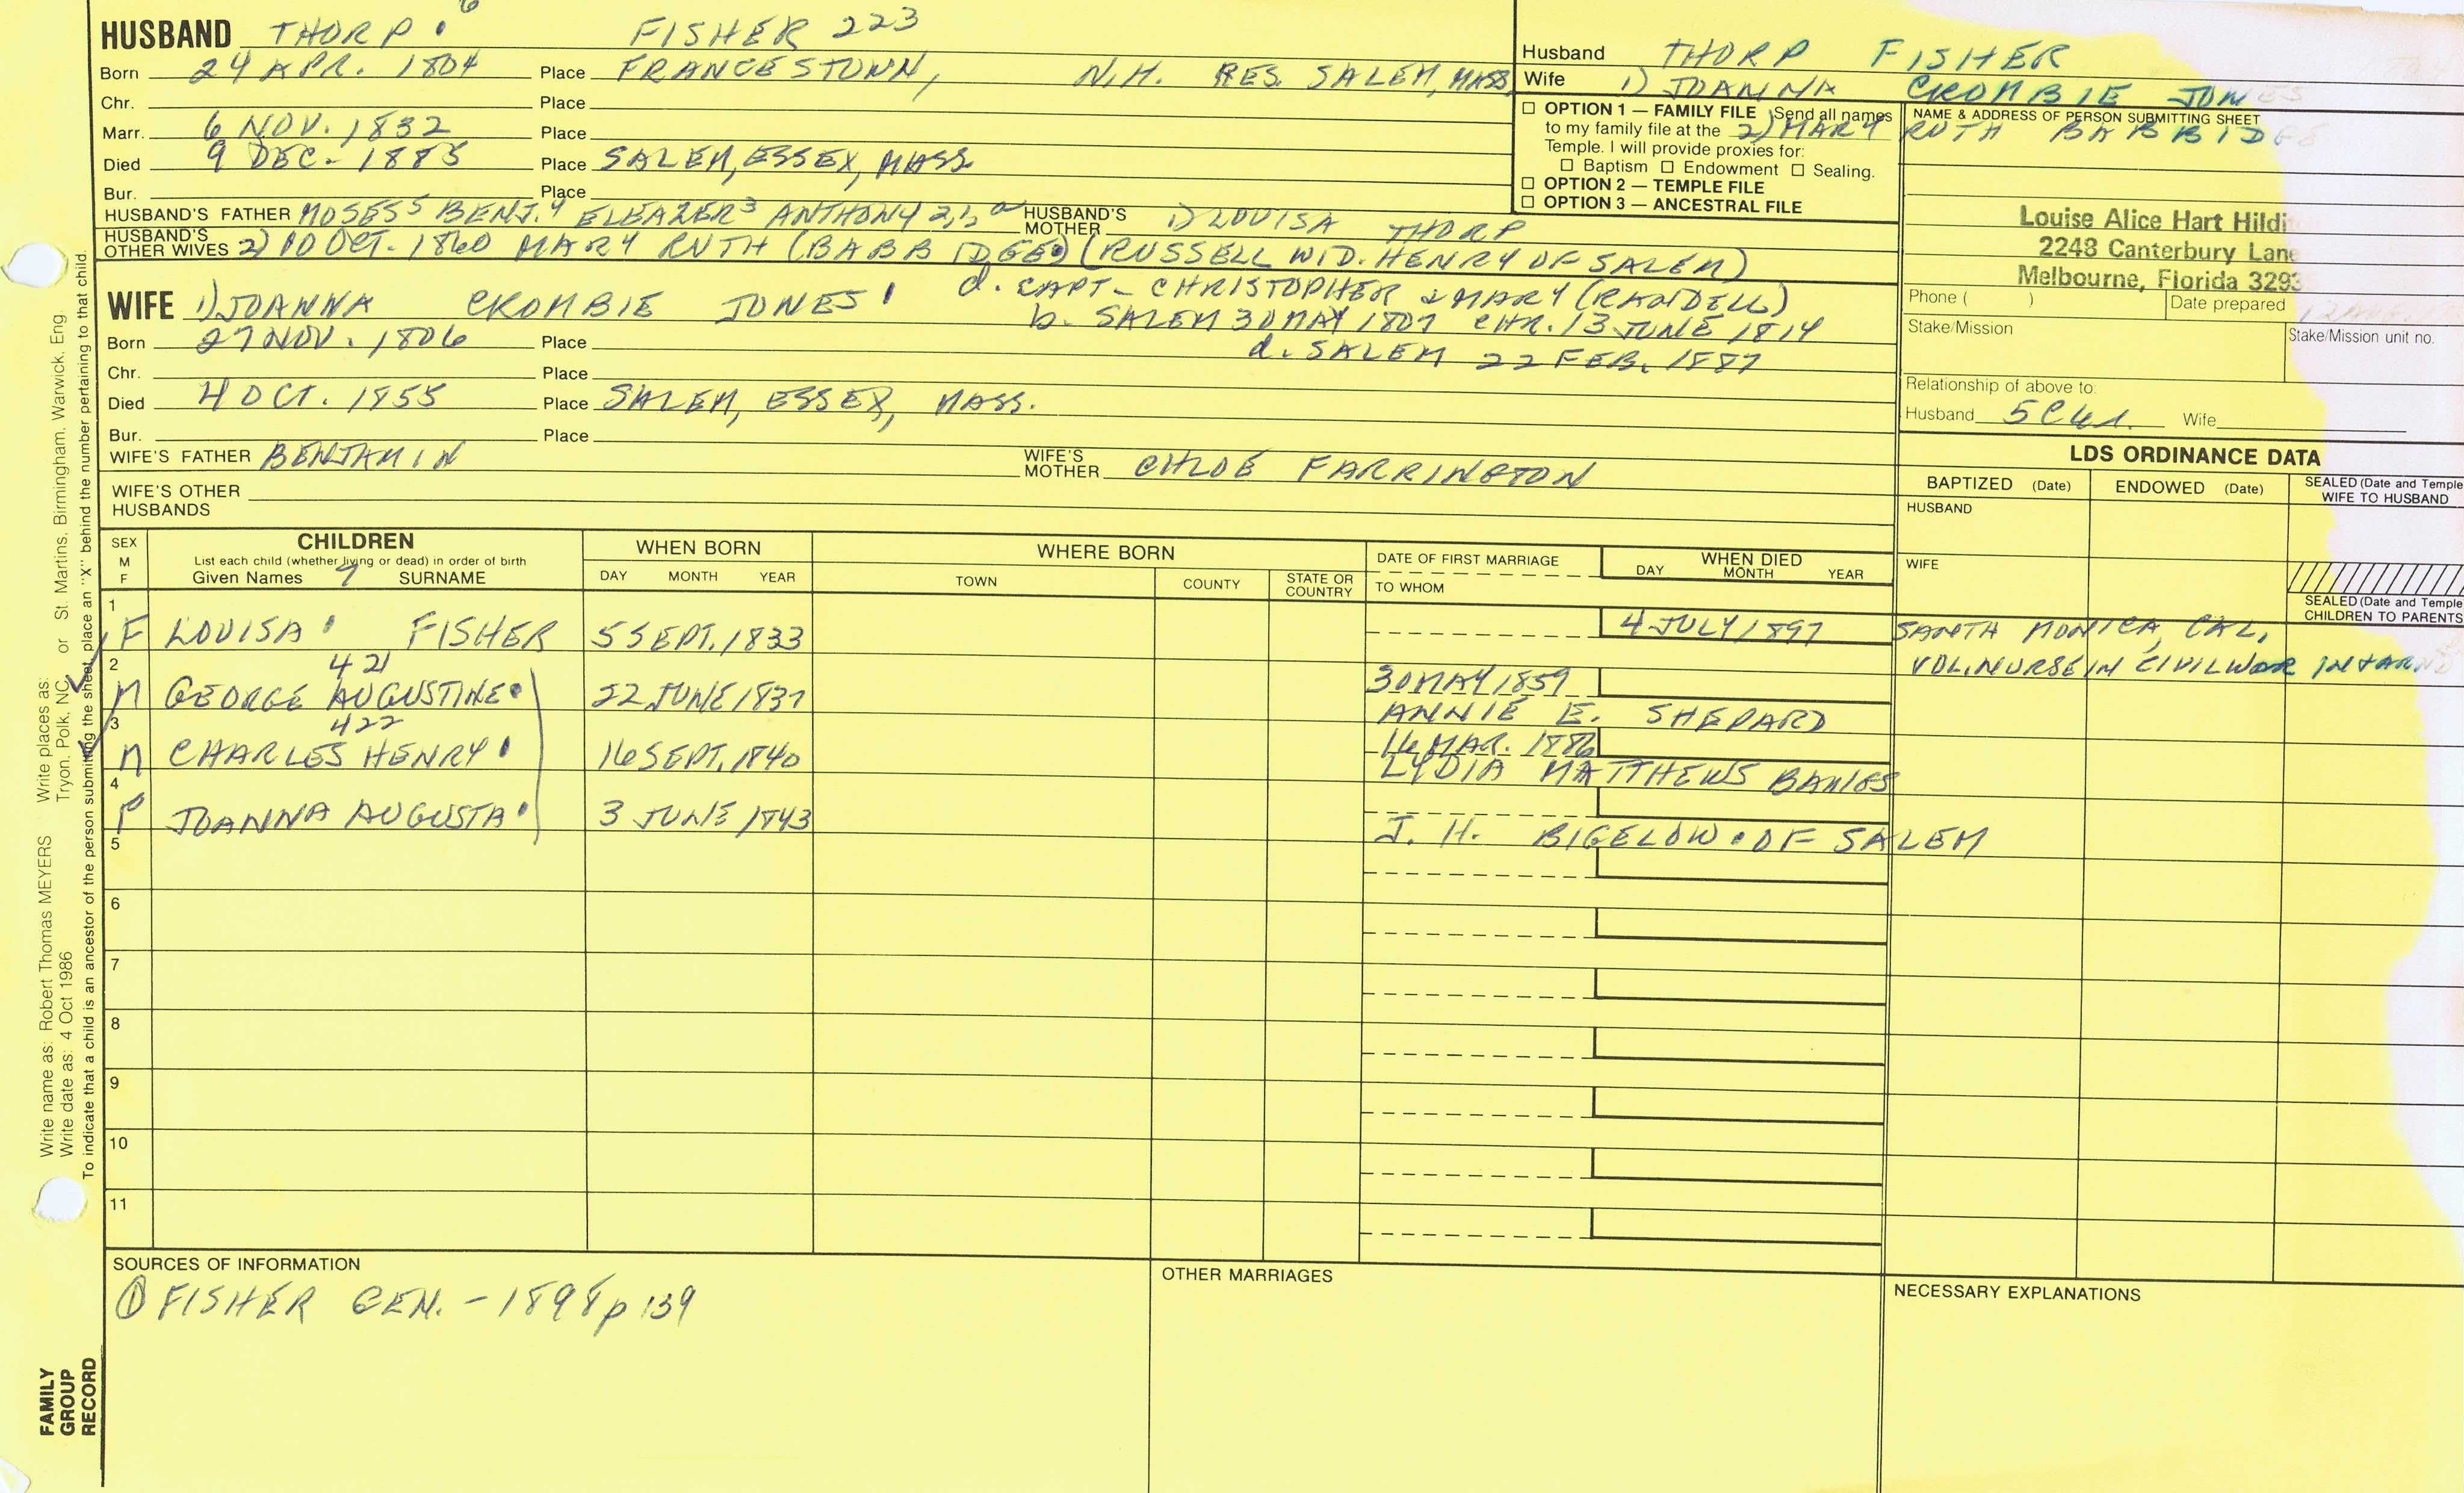 HUSBAND THORP 6 FISHER 223
Born 24 APR. 1804 Place FRANCESTOWN, N.H. RES. SALEM, MASS
Chr. Place
Marr. 6 NOV. 1832 Place
Died 9 DEC. 1885 Place SALEM, ESSEX, MASS
Bur. Place
HUSBAND'S FATHER MOSES 5 BENJ. 4 ELEAZER 3 ANTHONY 2,1 HUSBAND'S MOTHER 1) LOUISA THORP
HUSBAND'S OTHER WIVES 2) 10 OCT. 1860 MARY RUTH (BABBIDGE) (RUSSELL WID. HENRY OF SALEM)
d. CAPT- CHRISTOPHER & MARY (RANDELL)
b. SALEM 30 MAY 1807 CHR. 13 JUNE 1814
d. SALEM 22 FEB. 1887
WIFE 1) JOANNA CROMBIE JONES
Born 27 NOV. 1806 Place
Chr. Place
Died 4 OCT. 1855 Place SALEM, ESSEX, MASS.
Bur. Place
WIFE'S FATHER BENJAMIN WIFE'S MOTHER CHLOE FARRINGTON
WIFE'S OTHER HUSBANDS
Husband THORP FISHER
Wife 1) JOANNA CROMBIE JONES
2) MARY RUTH BABBIDGE
☐ OPTION 1 — FAMILY FILE Send all names
to my family file at the
Temple. I will provide proxies for:
☐ Baptism ☐ Endowment ☐ Sealing.
☐ OPTION 2 — TEMPLE FILE
☐ OPTION 3 — ANCESTRAL FILE
NAME & ADDRESS OF PERSON SUBMITTING SHEET
Louise Alice Hart Hildi
2248 Canterbury Lane
Melbourne, Florida 3293
Phone ( ) Date prepared
Stake/Mission Stake/Mission unit no.
Relationship of above to:
Husband 5C4r. Wife
LDS ORDINANCE DATA
BAPTIZED (Date) ENDOWED (Date) SEALED (Date and Temple) WIFE TO HUSBAND
HUSBAND
WIFE
SEALED (Date and Temple) CHILDREN TO PARENTS
SEX M F
CHILDREN
List each child (whether living or dead) in order of birth
Given Names 7 SURNAME
WHEN BORN
DAY MONTH YEAR
WHERE BORN
TOWN COUNTY STATE OR COUNTRY
DATE OF FIRST MARRIAGE
TO WHOM
WHEN DIED
DAY MONTH YEAR
1 F LOUISA FISHER 5 SEPT. 1833 4 JULY 1897 SANTA MONICA, CAL,
VOL. NURSE IN CIVIL WAR
2 421
M GEORGE AUGUSTINE 22 JUNE 1837 30 MAY 1859
ANNIE E. SHEPARD
3 422
M CHARLES HENRY 16 SEPT. 1840 16 MAR. 1886
LYDIA MATTHEWS
4 F JOANNA AUGUSTA 3 JUNE 1843
J. H. BIGELOW OF SALEM
5
6
7
8
9
10
11
SOURCES OF INFORMATION
① FISHER GEN. - 1898 p 139
OTHER MARRIAGES
NECESSARY EXPLANATIONS
Write name as: Robert Thomas MEYERS Write places as: Tryon, Polk, NC or St. Martins, Birmingham, Warwick, Eng.
Write date as: 4 Oct 1986
To indicate that a child is an ancestor of the person submitting the sheet, place an "X" behind the number pertaining to that child.
FAMILY
GROUP
RECORD